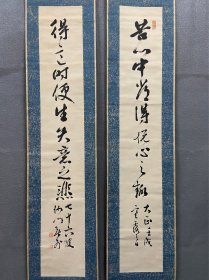 苦心中常得悦心之趣
大正壬戌
得意時便生失意之悲
七十六叟